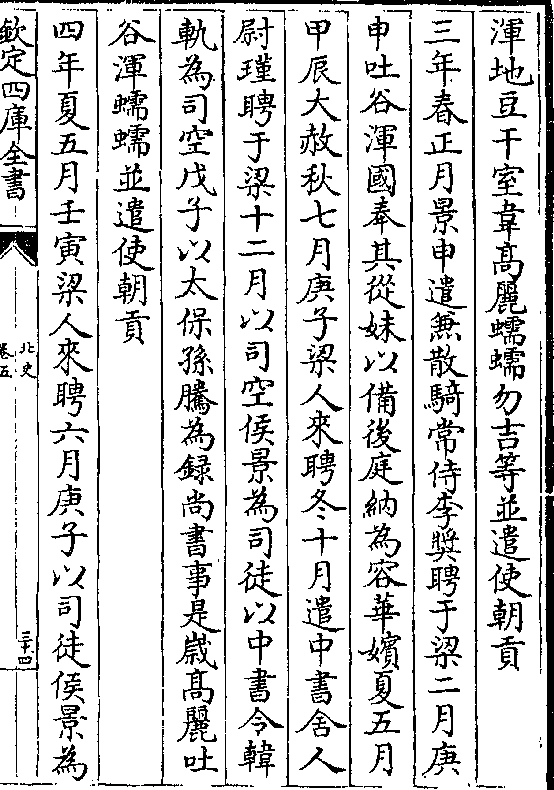 渾地豆干室韋髙麗蠕蠕勿吉等並遣使朝貢
三年春正月景申遣兼散騎常侍李奨聘于梁二月庚
申吐谷渾國奉其從妹以備後庭納為容華嬪夏五月
甲辰大赦秋七月庚子梁人來聘冬十月遣中書舍人
尉瑾聘于梁十二月以司空侯景為司徒以中書令韓
軌為司空戊子以太保孫騰為録尚書事是歳髙麗吐
谷渾蠕蠕並遣使朝貢
四年夏五月壬寅梁人來聘六月庚子以司徒侯景為
欽定四庫全書
北史
卷五
三十四